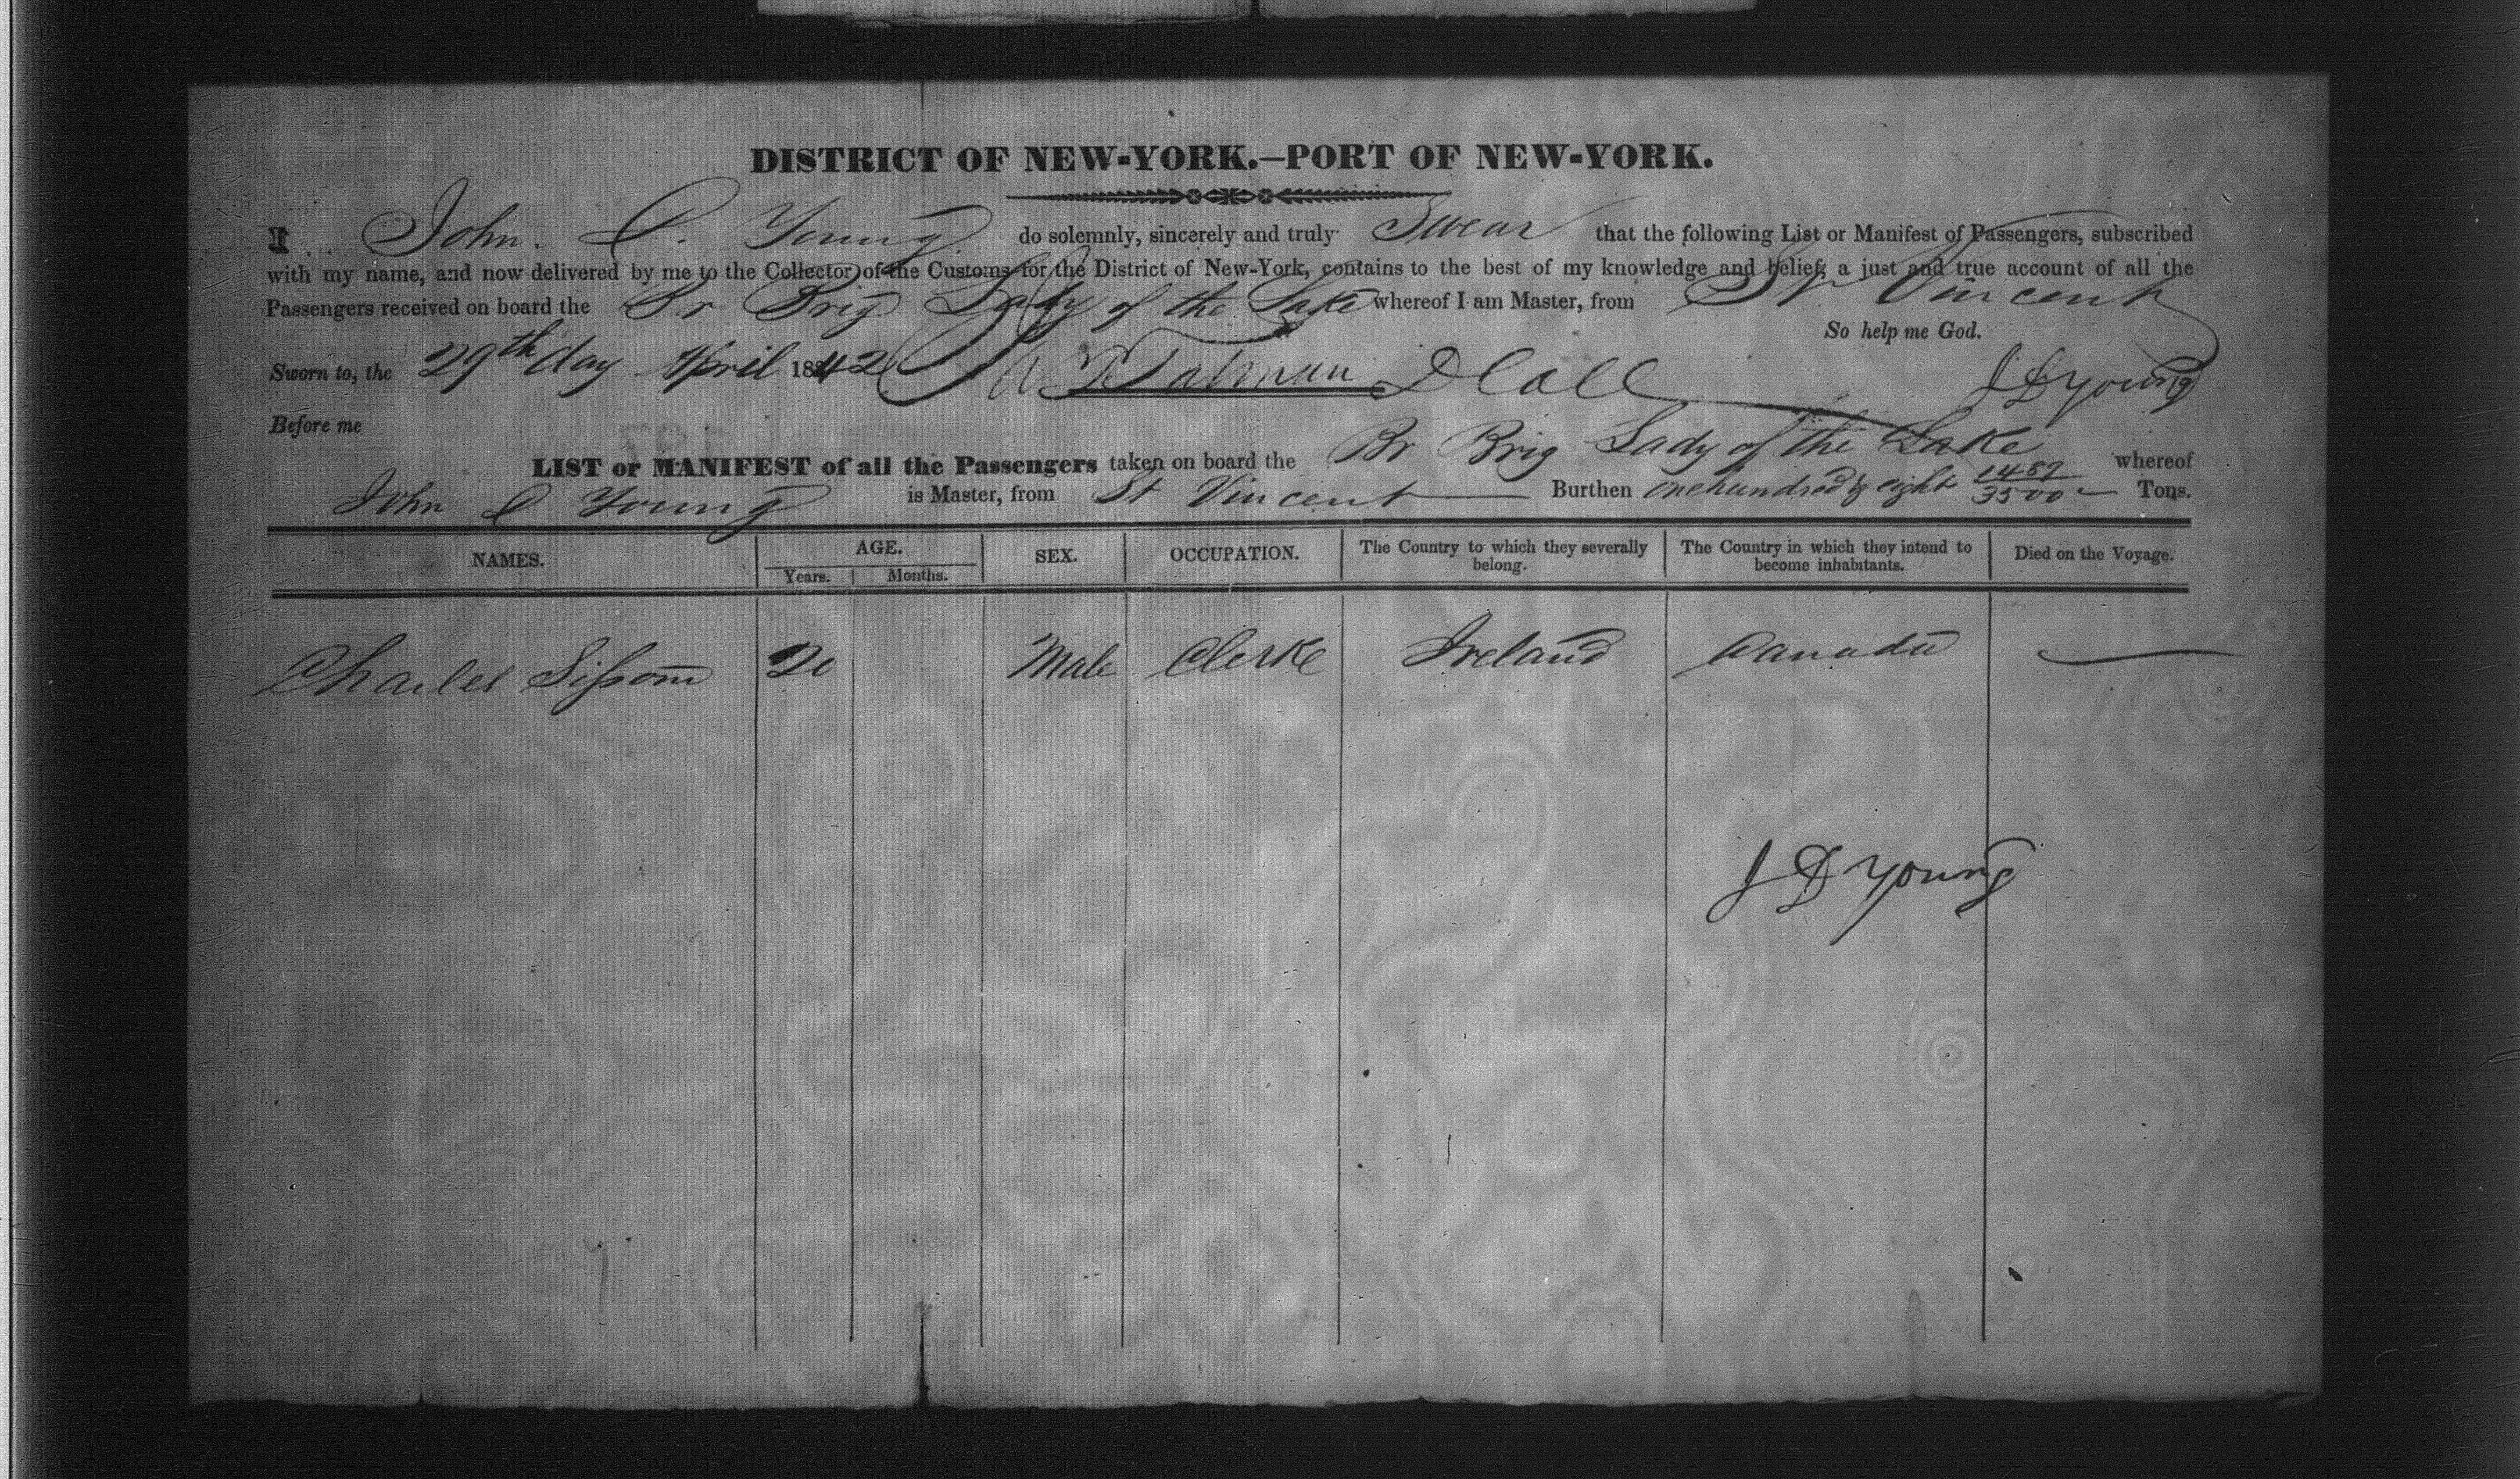 DISTRICT OF NEW-YORK.—PORT OF NEW-YORK.
I John. D. Young. do solemnly, sincerely and truly Swear that the following List or Manifest of Passengers, subscribed
with my name, and now delivered by me to the Collector of the Customs for the District of New-York, contains to the best of my knowledge and belief, a just and true account of all the
Passengers received on board the Br Brig Lady of the Lake whereof I am Master, from St Vincent
So help me God.
Sworn to, the 29th day April 1842 Talman D Coll J D Young
Before me
LIST or MANIFEST of all the Passengers taken on board the Br Brig Lady of the Lake whereof
John D Young is Master, from St Vincent Burthen one hundred & eight 1489/3500 Tons.
NAMES. AGE. SEX. OCCUPATION. The Country to which they severally belong. The Country in which they intend to become inhabitants. Died on the Voyage.
Years. Months.
Charles Sisson 20 Male Clerke Ireland Canada —
J D Young